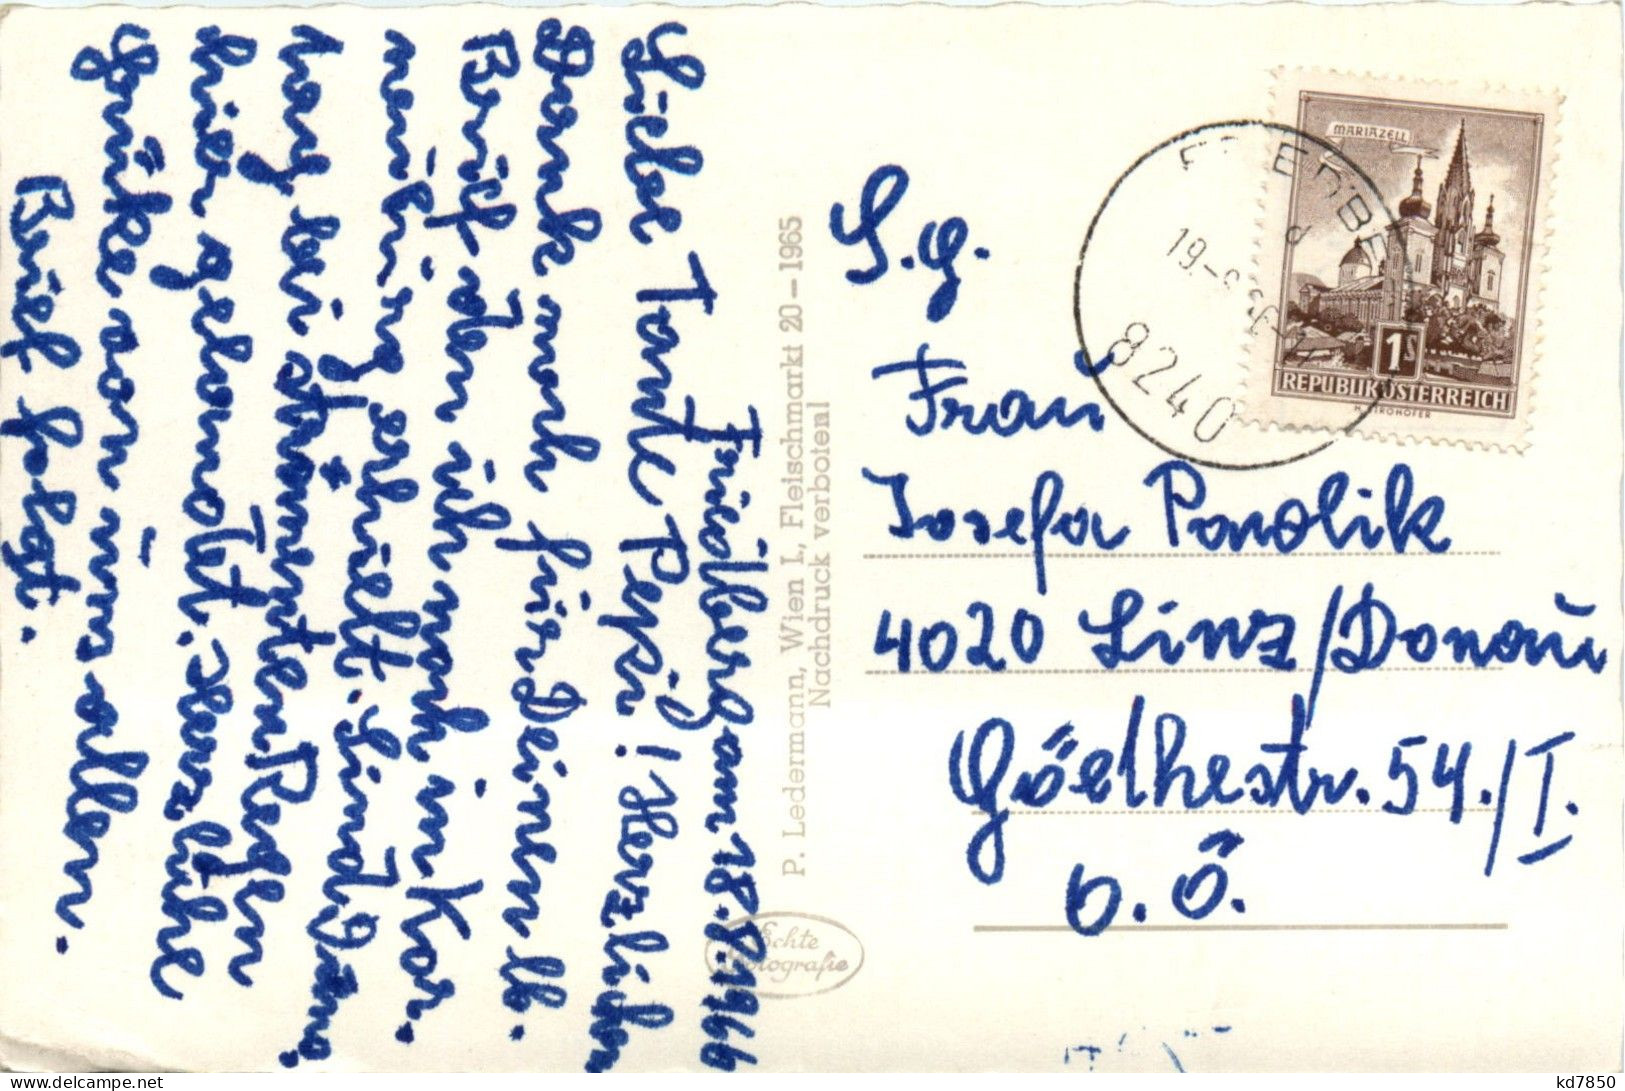 Friedberg am 18.8.1966
Liebe Tante Pepi! Herzlichen
Dank noch für Deinen lb.
Brief den ich noch in Kor-
neuburg erhielt. Sind Diens-
tag bei strömenten Regen
hier gelandet. Herzliche
Grüße von uns allen.
Brief folgt.
P. Ledermann, Wien I., Fleischmarkt 20 – 1965
Nachdruck verboten!
Echte
Fotografie
MARIAZELL
1S
REPUBLIK ÖSTERREICH
8240
S.g.
Frau
Josefa
4020 Linz/Donau
Göethestr. 54./I.
O.Ö.
kd7850